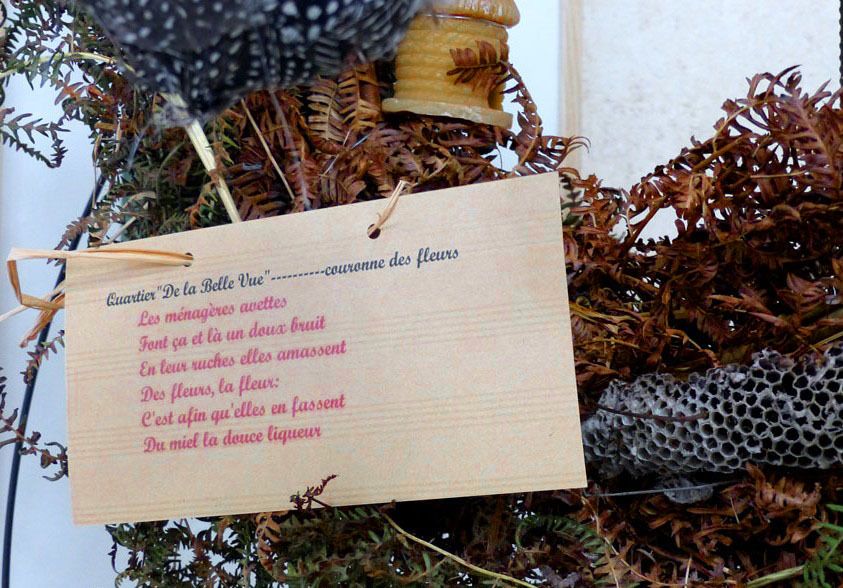 Quartier"De la Belle Vue"----------couronne des fleurs
Les ménagères avettes
Font ça et là un doux bruit
En leur ruches elles amassent
Des fleurs, la fleur:
C'est afin qu'elles en fassent
Du miel la douce liqueur